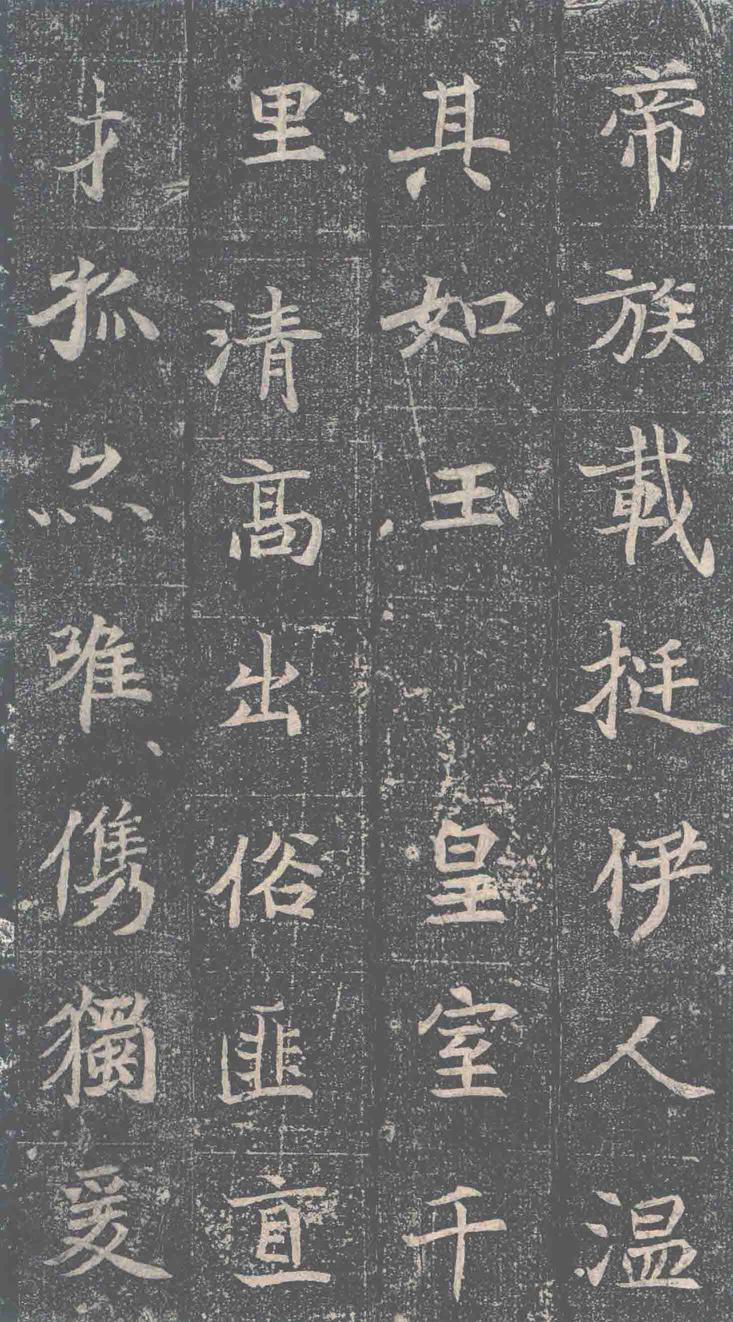 帝族載挺伊人温
其如玉　皇室千
里清髙出俗匪直
才孤亦唯儁獨爰